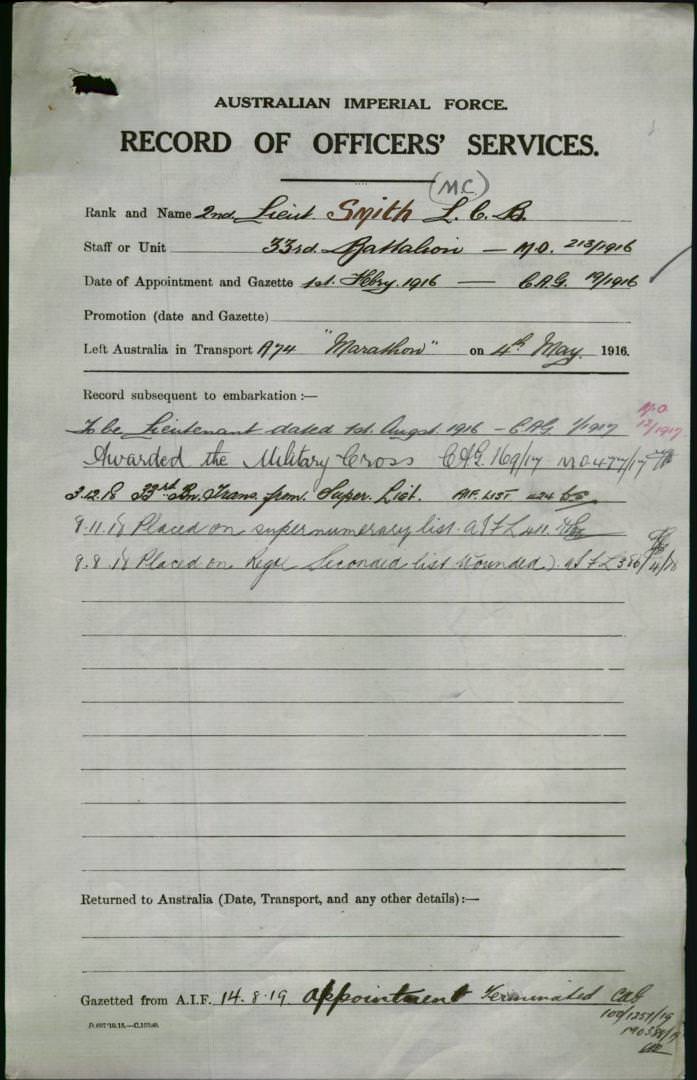 AUSTRALIAN IMPERIAL FORCE.
RECORD OF OFFICERS' SERVICES.
(M.C.)
Rank and Name 2nd. Lieut. Smith L. C. B.
Staff or Unit 33rd. Battalion — M.O. 213/1916
Date of Appointment and Gazette 1st. Febry. 1916 — C.A.G. 19/1916
Promotion (date and Gazette)
Left Australia in Transport A74 "Marathon" on 4th May. 1916.
Record subsequent to embarkation :—
To be Lieutenant dated 1st. Augst. 1916 – C.A.G. 1/1917 M.O. 12/1917
Awarded the Military Cross C.A.G. 169/17 M.O 477/17
3.12.18 33rd Bn. Trans. from Super. List. A.I.F. LIST 424
9.11.18 Placed on supernumerary list. AIFL 411.
9.8.18 Placed on Regtl Seconded list wounded). AIFL 386
Returned to Australia (Date, Transport, and any other details) :—
Gazetted from A.I.F. 14.8.19 Appointment Terminated CAG
100/1257/19